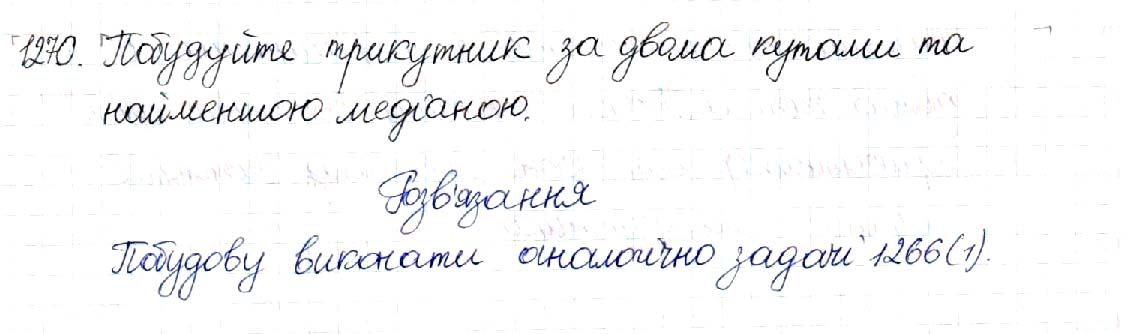 1270. Побудуйте трикутник за двома кутами та
найменшою медіаною.
Розв'язання
Побудову виконати аналогічно задачі 1266(1).